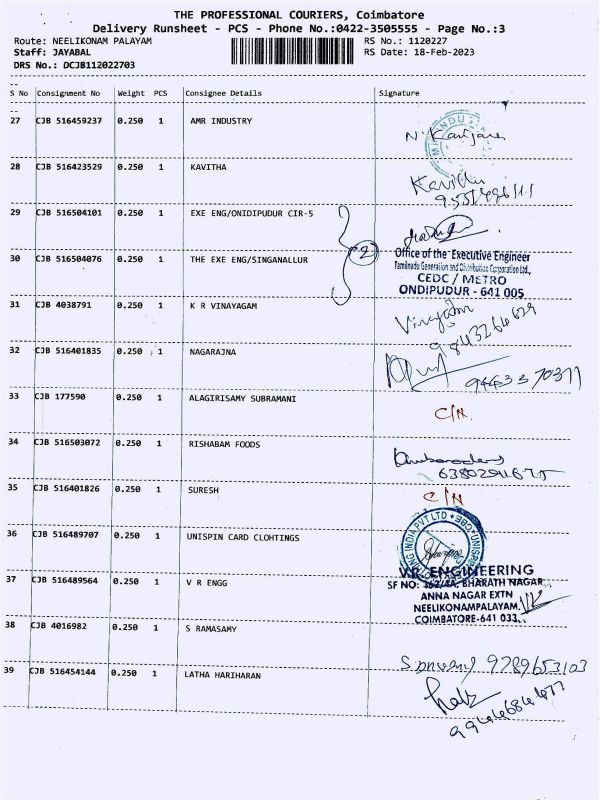 THE PROFESSIONAL COURIERS, Coimbatore
Delivery Runsheet - PCS - Phone No.:0422-3505555 - Page No.:3
Route: NEELIKONAM PALAYAM RS No.: 1120227
Staff: JAYABAL RS Date: 18-Feb-2023
DRS No.: DCJB112022703
S No Consignment No Weight PCS Consignee Details Signature
27 CJB 516459237 0.250 1 AMR INDUSTRY
28 CJB 516423529 0.250 1 KAVITHA
29 CJB 516504101 0.250 1 EXE ENG/ONIDIPUDUR CIR-5
30 CJB 516504076 0.250 1 THE EXE ENG/SINGANALLUR 2
Office of the Executive Engineer
Tamilnadu Generation and Distribution Corporation Ltd.,
CEDC / METRO
ONDIPUDUR - 641 005
31 CJB 4038791 0.250 1 K R VINAYAGAM
Vinayagam
9843264629
32 CJB 516401835 0.250 1 NAGARAJNA
9443370377
33 CJB 177590 0.250 1 ALAGIRISAMY SUBRAMANI
C/N
34 CJB 516503072 0.250 1 RISHABAM FOODS
35 CJB 516401826 0.250 1 SURESH
C/N
36 CJB 516489707 0.250 1 UNISPIN CARD CLOHTINGS
37 CJB 516489564 0.250 1 V R ENGG
V.R. ENGINEERING
SF NO: 362/4A, BHARATH NAGAR
ANNA NAGAR EXTN
NEELIKONAMPALAYAM,
COIMBATORE-641 033.
38 CJB 4016982 0.250 1 S RAMASAMY
9789653103
39 CJB 516454144 0.250 1 LATHA HARIHARAN